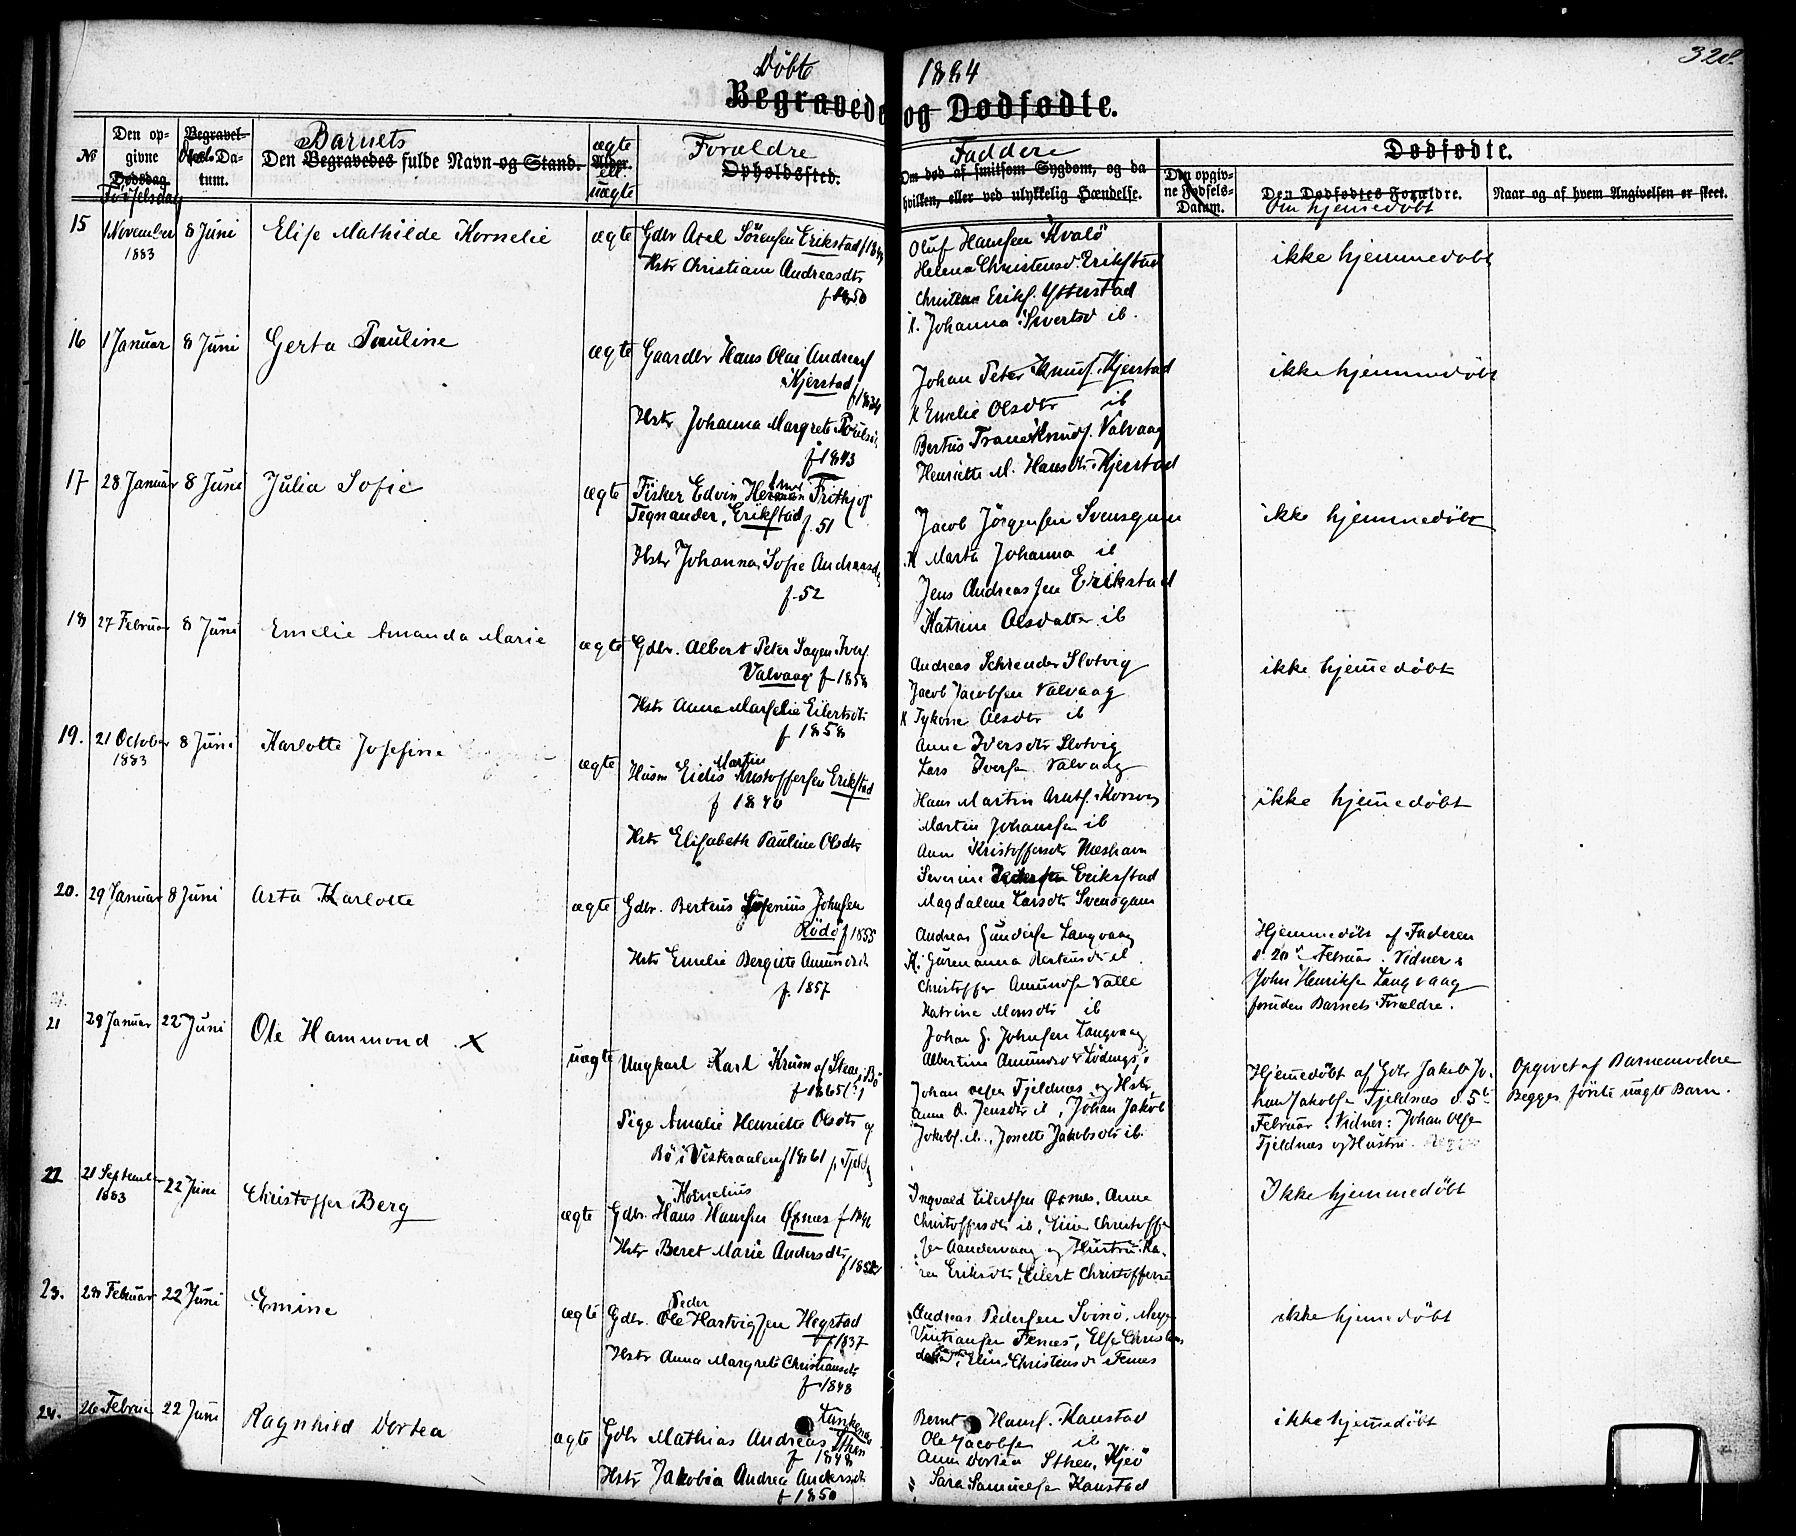 Døbte 1884 328.
Begravede og Dødfødte.
No
Den op-
givne
Dødsdag
Fødselsdag
Begravel-
Daabs Da-
tum.
Barnets
Den Begravedes fulde Navn og Stand.
ægte
Alder.
ell
uægte
Forældre
Opholdssted.
Faddere
Om død af smitsom Sygdom, og da
hvilken, eller ved ulykkelig Hændelse.
Dødfødte.
Den opgiv-
ne Fødsels-
Datum.
Den Dødfødtes Forældre.
Om hjemmedøbt
Naar og af hvem Angivelsen er skeet.
15 1 November 8 Juni Elise Mathilde Kornelie ægte Gdbr Axel Sørensen Erikstad
1883
Hstr Christiane Andreasdtr
f 1850
Oluf Hansen Kvalø
Helena Christensd. Erikstad
Eriks. Ytterstad
Johanna Sivertsd ib.
ikke hjemmedøbt
16 1 Januar 8 Juni Gerta Pauline ægte Gaardbr Hans Olai Andreas
Kjerstad
Hstr Johanna Margrete
f 1843
Johan Peter Knuds. Kjerstad
Emelie Olsdtr ib
Bertus Knuds. Valvaag
Henriette M. Hansdtr Kjerstad
ikke hjemmedøbt
17 28 Januar 8 Juni Julia Sofie ægte Fisker Edvin Frithjof
Tegnander, Erikstad f. 51
Hstr Johanna Sofie Andreasdtr
f. 52
Jacob Jørgensen Svensgam
Marta Johanna ib
Jens Andreassen Erikstad
Katrine Olsdatter ib
ikke hjemmedøbt
18 27 Februar 8 Juni Emelie Amanda Marie ægte Gdbr. Albert Peter Iver
Valvaag f 1858
Hstr Anna Marselie Eilertsdtr
f 1858
Andreas Schrøder Slotvig
Jacob Jacobsen Valvaag
Olsdtr ib
Anne Iversdtr Slotvig
Lars Iversen Valvaag
ikke hjemmedøbt
19. 21 October 8 Juni Karlotte Josefine ægte
1883
Martin
Husm Eidis Kristoffersen Erikstad
f 1840
Hstr Elisabeth Pauline Olsdtr
Hans Martin
Martin Johansen ib
Anne Kristoffersdtr Næshavn
Severine Erikstad
Magdalene Larsdtr Svensgam
ikke hjemmedøbt
20. 29 Januar 8 Juni Asta Karlotte ægte Gdbr. Berteus Johnsen
Rødø f 1855
Hstr Emelie Bergitte Amundsdtr
f. 1857
Andreas Langvaag
Gurenanna Bertensdtr ib
Christoffer Amundse Valle
Katrine Monsdtr ib
Johan G. Johnsen Langvaag
Hjemmedøbt af Faderen
d. 20de Februar. Vidner:
John Henrikse Langvaag
foruden Barnets Forældre.
21 28 Januar 22 Juni Ole Hammond x uægte Ungkarl Karl af i Bø
f 1865(?)
Pige Amalie Henriette Olsdtr
Bø i Vesteraalen f 1861
Albertine
Johan Tjeldnæs og Hstr
Anne O. Jensdtr ib, Johan Jakob
Jakobs. ib., Josette Jakobsdtr ib.
Hjemmedøbt af Gdbr Jakob Jo-
han Jakobse Tjeldnæs d. 5te
Februar. Vidner: Johan Olse
Tjeldnæs og Hustru
Opgivet af Barnemoderen
Begges første uægte Barn.
22 21 Septemb 22 Juni Christoffer Berg ægte
1883
Kornelius
Gdbr. Hans Hansen Øxnes
Hstr Beret Marie Andersdtr
Ingvald Eilertsen Øxnes, Anne
Christoffersdtr ib, Christoffer
sen Aandervaag og Hustru Ka-
ren Eriksdtr, Eilert Christoffersen
Ikke hjemmedøbt
23. 28 Februar 22 Juni Emine ægte
Peder
Gdbr. Ole Hartvigsen Hegstad
f 1837
Hstr Anna Margrete Christiansdtr
f 1848
Andreas Pedersen Svinø,
Fenes, Else
Christensd Fenes
ikke hjemmedøbt
24. 26 Februar 22 Juni Ragnhild Dortea ægte Gdbr Mathias Andreas Sthen
f 1848
Hstr Jakobia Andrea Andersdtr
f 1850
Bernt Hans. Kanstad
Ole Jacobse ib
Anne Dortea Sthen, Kjeø
Sara Samuelse Kanstad
ikke hjemmedøbt